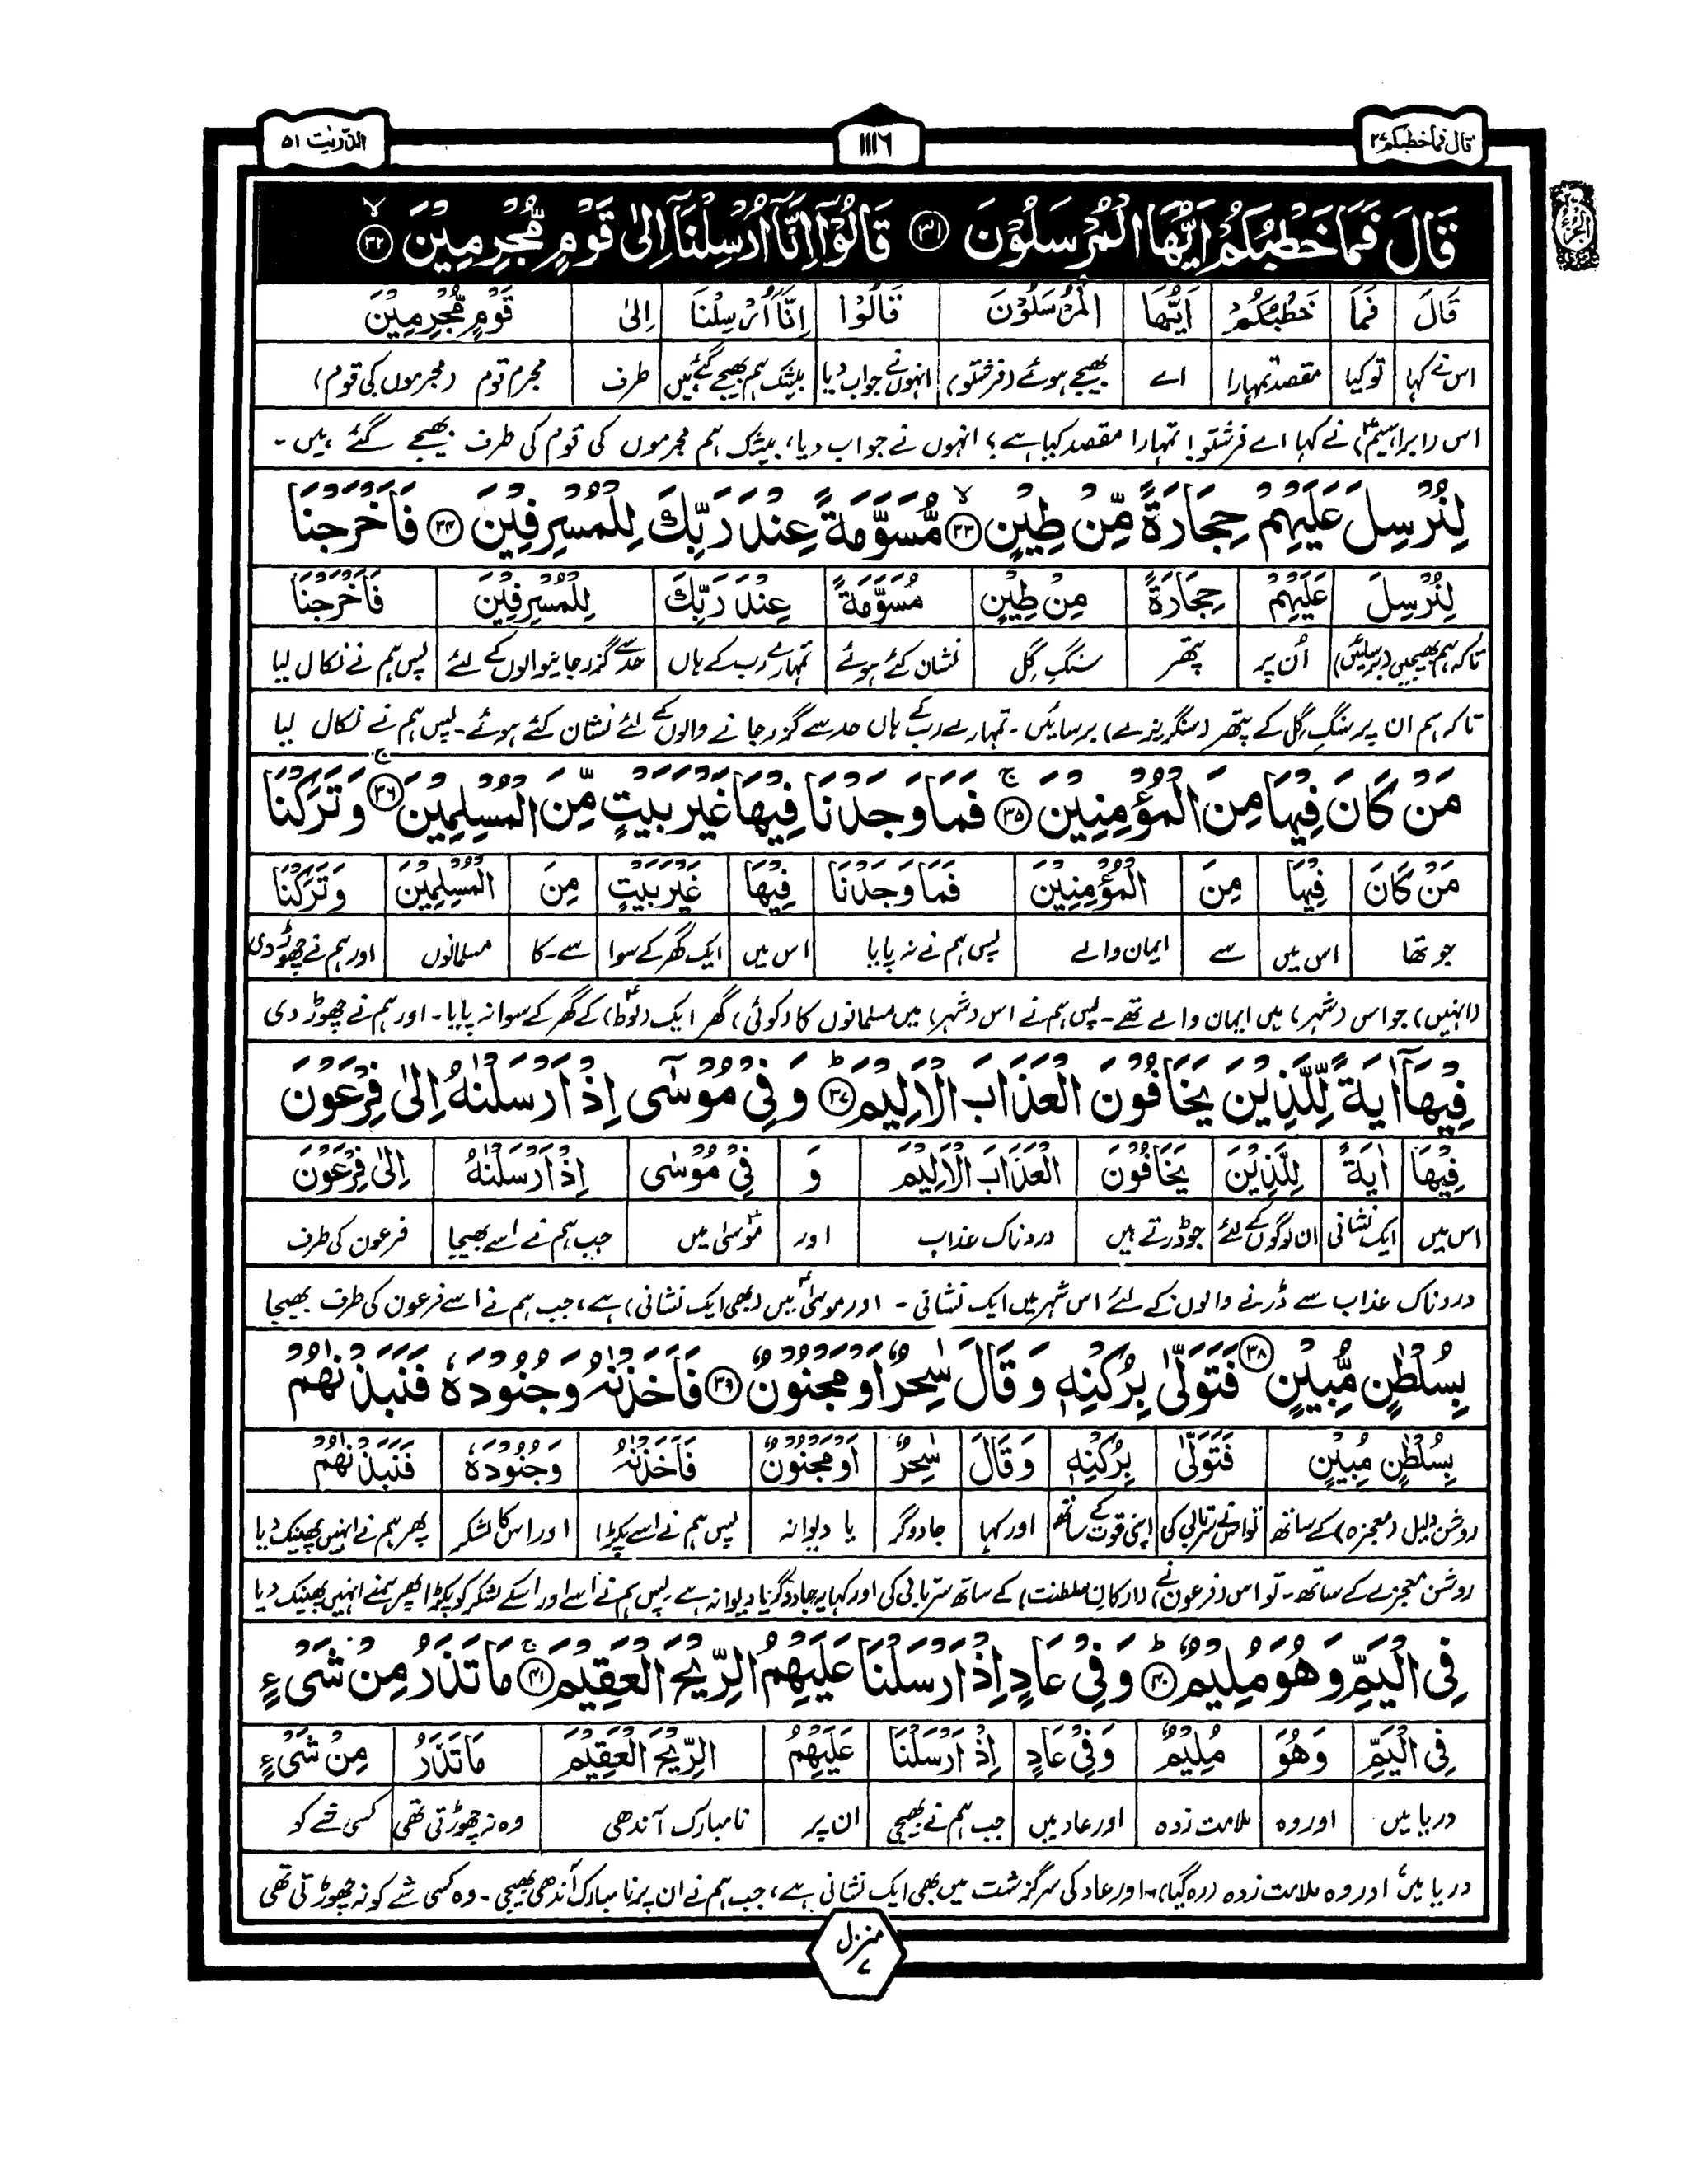 قال فما خطبکم ۲۷
۱۱۱۶
الذّٰریٰت ۵۱
قَالَ فَمَا خَطْبُكُمْ اَیُّهَا الْمُرْسَلُوْنَ ﴿۳۱﴾ قَالُوْۤا اِنَّاۤ اُرْسِلْنَاۤ اِلٰی قَوْمٍ مُّجْرِمِیْنَ ﴿۳۲﴾
قَالَ فَمَا خَطْبُكُمْ اَیُّهَا الْمُرْسَلُوْنَ قَالُوْا اِنَّاۤ اُرْسِلْنَا اِلٰی قَوْمٍ مُّجْرِمِیْنَ
اس نے کہا تو کیا مقصد تمہارا اے بھیجے ہوئے (فرشتو) انہوں نے جواب دیا بیشک ہم بھیجے گئے ہیں طرف مجرم قوم (مجرموں کی قوم)
اس (ابراہیمؑ) نے کہا اے فرشتو! تمہارا مقصد کیا ہے؟ انہوں نے جواب دیا، بیشک ہم مجرموں کی قوم کی طرف بھیجے گئے ہیں۔
لِنُرْسِلَ عَلَیْهِمْ حِجَارَةً مِّنْ طِیْنٍ ﴿۳۳﴾ مُّسَوَّمَةً عِنْدَ رَبِّكَ لِلْمُسْرِفِیْنَ ﴿۳۴﴾ فَاَخْرَجْنَا
لِنُرْسِلَ عَلَیْهِمْ حِجَارَةً مِنْ طِیْنٍ مُسَوَّمَةً عِنْدَ رَبِّكَ لِلْمُسْرِفِیْنَ فَاَخْرَجْنَا
تاکہ ہم بھیجیں (برسائیں) اُن پر پتھر سنگِ گِل نشان کئے ہوئے تمہارے رب کے ہاں حد سے گزر جانیوالوں کے لئے پس ہم نے نکال لیا
تاکہ ہم ان پر سنگِ گِل کے پتھر (سنگریزے) برسائیں۔ تمہارے رب کے ہاں حد سے گزر جانے والوں کے لئے نشان کئے ہوئے۔ پس ہم نے نکال لیا
مَنْ كَانَ فِیْهَا مِنَ الْمُؤْمِنِیْنَ ﴿۳۵﴾ فَمَا وَجَدْنَا فِیْهَا غَیْرَ بَیْتٍ مِّنَ الْمُسْلِمِیْنَ ﴿۳۶﴾ وَتَرَكْنَا
مَنْ كَانَ فِیْهَا مِنَ الْمُؤْمِنِیْنَ فَمَا وَجَدْنَا فِیْهَا غَیْرَ بَیْتٍ مِنَ الْمُسْلِمِیْنَ وَتَرَكْنَا
جو تھا اس میں سے ایمان والے پس ہم نے نہ پایا اس میں ایک گھر کے سوا سے۔کا مسلمانوں اور ہم نے چھوڑ دی
(انہیں) جو اس (شہر) میں ایمان والے تھے۔ پس ہم نے اس (شہر) میں مسلمانوں کا (کوئی) گھر ایک (لوطؑ) کے گھر کے سوا نہ پایا۔ اور ہم نے چھوڑ دی
فِیْهَاۤ اٰیَةً لِّلَّذِیْنَ یَخَافُوْنَ الْعَذَابَ الْاَلِیْمَ ﴿۳۷﴾ وَ فِیْ مُوْسٰۤی اِذْ اَرْسَلْنٰهُ اِلٰی فِرْعَوْنَ
فِیْهَا اٰیَةً لِلَّذِیْنَ یَخَافُوْنَ الْعَذَابَ الْاَلِیْمَ وَ فِیْ مُوْسٰی اِذْ اَرْسَلْنٰهُ اِلٰی فِرْعَوْنَ
اس میں ایک نشانی ان لوگوں کے لئے جو ڈرتے ہیں دردناک عذاب اور موسیٰؑ میں جب ہم نے اسے بھیجا فرعون کی طرف
دردناک عذاب سے ڈرنے والوں کے لئے اس شہر میں ایک نشانی۔ اور موسیٰؑ میں (بھی ایک نشانی) ہے، جب ہم نے اسے فرعون کی طرف بھیجا
بِسُلْطٰنٍ مُّبِیْنٍ ﴿۳۸﴾ فَتَوَلّٰی بِرُكْنِهٖ وَ قَالَ سٰحِرٌ اَوْ مَجْنُوْنٌ ﴿۳۹﴾ فَاَخَذْنٰهُ وَجُنُوْدَهٗ فَنَبَذْنٰهُمْ
بِسُلْطٰنٍ مُبِیْنٍ فَتَوَلّٰی بِرُكْنِهٖ وَقَالَ سٰحِرٌ اَوْ مَجْنُوْنٌ فَاَخَذْنٰهُ وَجُنُوْدَهٗ فَنَبَذْنٰهُمْ
روشن دلیل (معجزہ) کے ساتھ تو اس نے سرتابی کی اپنی قوت کے ساتھ اور کہا جادوگر یا دیوانہ پس ہم نے اسے پکڑا اور اس کا لشکر پھر ہم نے انہیں پھینک دیا
روشن معجزے کے ساتھ۔ تو اس (فرعون) نے (ارکانِ سلطنت) کے ساتھ سرتابی کی اور کہا یہ جادوگر یا دیوانہ ہے۔ پس ہم نے اسے اور اسکے لشکر کو پکڑا پھر ہمنے انہیں پھینک دیا
فِی الْیَمِّ وَ هُوَ مُلِیْمٌ ﴿۴۰﴾ وَ فِیْ عَادٍ اِذْ اَرْسَلْنَا عَلَیْهِمُ الرِّیْحَ الْعَقِیْمَ ﴿۴۱﴾ مَا تَذَرُ مِنْ شَیْءٍ
فِی الْیَمِّ وَهُوَ مُلِیْمٌ وَفِیْ عَادٍ اِذْ اَرْسَلْنَا عَلَیْهِمُ الرِّیْحَ الْعَقِیْمَ مَا تَذَرُ مِنْ شَیْءٍ
دریا میں اور وہ ملامت زدہ اور عاد میں جب ہم نے بھیجی ان پر نامبارک آندھی وہ نہ چھوڑتی تھی کسی شے کو
دریا میں، اور وہ ملامت زدہ (رہ گیا)۔ اور عاد کی سرگزشت میں بھی ایک نشانی ہے، جب ہم نے ان پر نامبارک آندھی بھیجی۔ وہ کسی شے کو نہ چھوڑتی تھی
منزل ۷